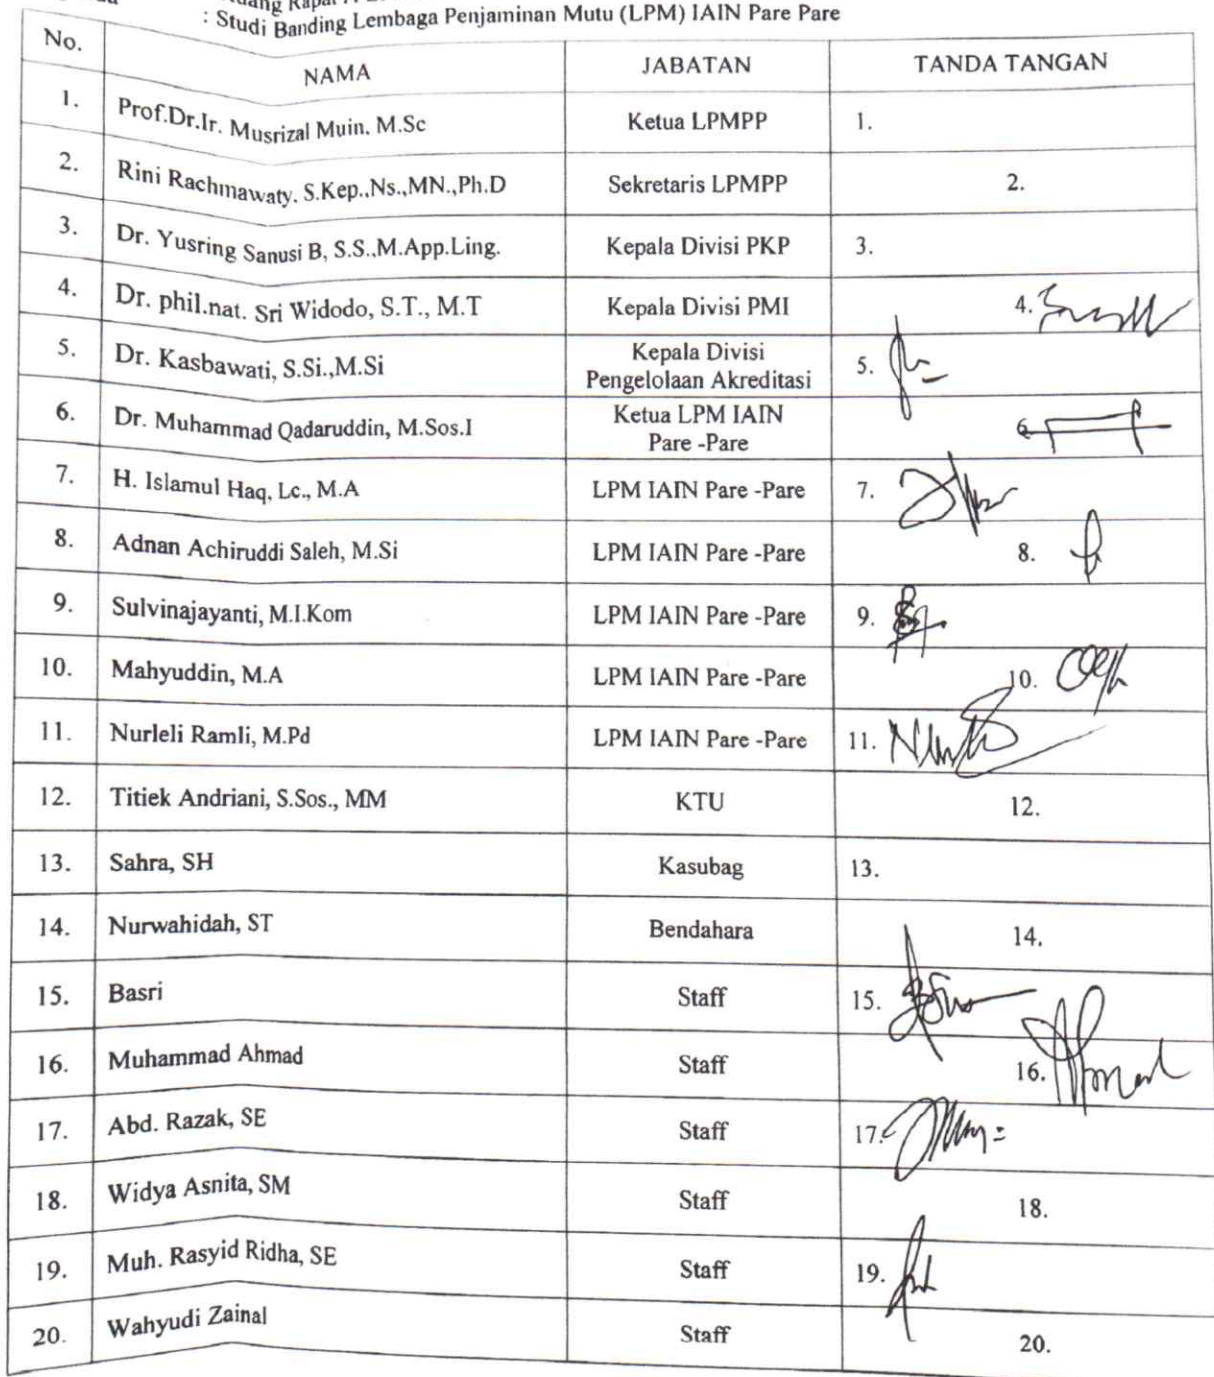 : Studi Banding Lembaga Penjaminan Mutu (LPM) IAIN Pare Pare
No. NAMA JABATAN TANDA TANGAN
1. Prof.Dr.Ir. Musrizal Muin. M.Sc Ketua LPMPP 1.
2. Rini Rachmawaty. S.Kep.,Ns.,MN.,Ph.D Sekretaris LPMPP 2.
3. Dr. Yusring Sanusi B, S.S.,M.App.Ling. Kepala Divisi PKP 3.
4. Dr. phil.nat. Sri Widodo, S.T., M.T Kepala Divisi PMI 4.
5. Dr. Kasbawati, S.Si.,M.Si Kepala Divisi
Pengelolaan Akreditasi 5.
6. Dr. Muhammad Qadaruddin, M.Sos.I Ketua LPM IAIN
Pare -Pare 6.
7. H. Islamul Haq, Lc., M.A LPM IAIN Pare -Pare 7.
8. Adnan Achiruddi Saleh, M.Si LPM IAIN Pare -Pare 8.
9. Sulvinajayanti, M.I.Kom LPM IAIN Pare -Pare 9.
10. Mahyuddin, M.A LPM IAIN Pare -Pare 10.
11. Nurleli Ramli, M.Pd LPM IAIN Pare -Pare 11.
12. Titiek Andriani, S.Sos., MM KTU 12.
13. Sahra, SH Kasubag 13.
14. Nurwahidah, ST Bendahara 14.
15. Basri Staff 15.
16. Muhammad Ahmad Staff 16.
17. Abd. Razak, SE Staff 17.
18. Widya Asnita, SM Staff 18.
19. Muh. Rasyid Ridha, SE Staff 19.
20. Wahyudi Zainal Staff 20.